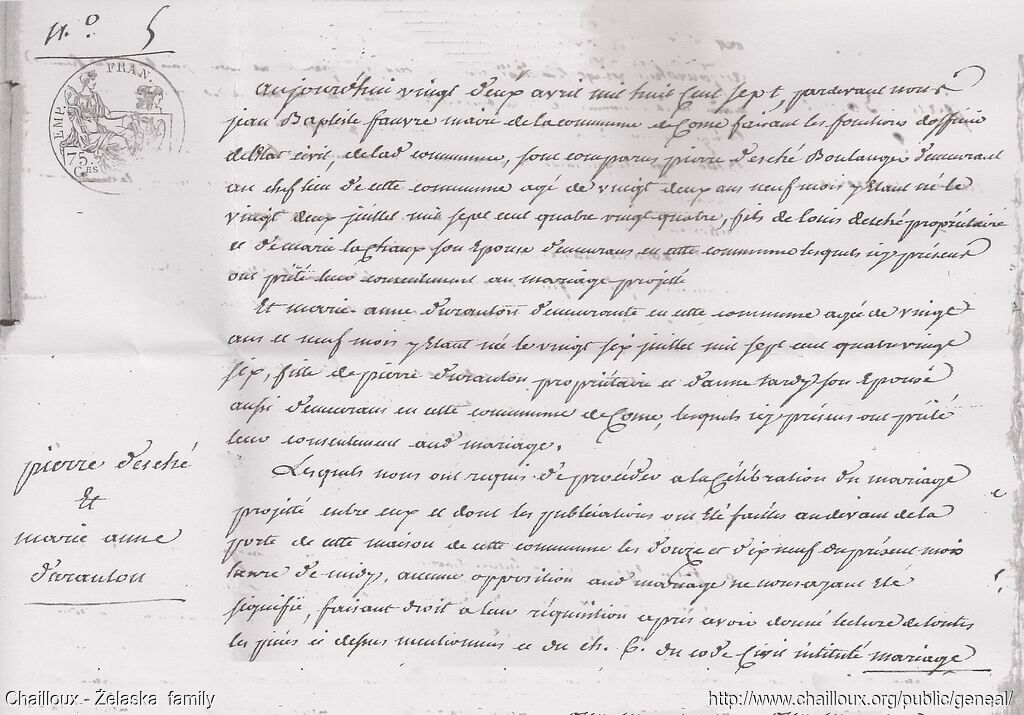 n.° 5
TEMP. FRAN.
75.
C.ES
aujourd'hui vingt deux avril mil huit cent sept, pardevant nous
jean Baptiste fauvre maire de la commune de Come faisant les fonctions d'officier
de l'Etat civil, de lad commune, sont comparus pierre desché Boulanger demeurant
au chef lieu de cette commune agé de vingt deux ans neuf mois y Etant né le
vingt deux juillet mil sept cent quatre vingt quatre, fils de louis desché propriétaire
et de marie la son Epouse demeurans en cette commune lesquels icy présens
ont prêté leur consentement au mariage projetté
Et marie anne duranton demeurante en cette commune agée de vingt
ans et neuf mois y Etant né le vingt six juillet mil sept cent quatre vingt
six, fille de pierre duranton propriétaire et d'anne tardy son Epouse
aussi demeurans en cette commune de Come, lesquels icy présens ont prêté
leur consentement aud mariage.
Lesquels nous ont requis de procéder a la Célébration du mariage
projetté entre eux et dont les publications ont Eté faittes audevant de la
porte de cette maison de cette commune les douze et dix neuf du présent mois
heure de midy, aucune opposition aud mariage ne nous ayant Eté
signifié, faisant droit a leur réquisition après avoir donné lecture de toutes
les pièces ci dessus mentionnées et du ch. 6. du code Civil intitulé mariage
pierre desché
Et
marie anne
duranton
Chailloux - Żelaska family
http://www.chailloux.org/public/geneal/